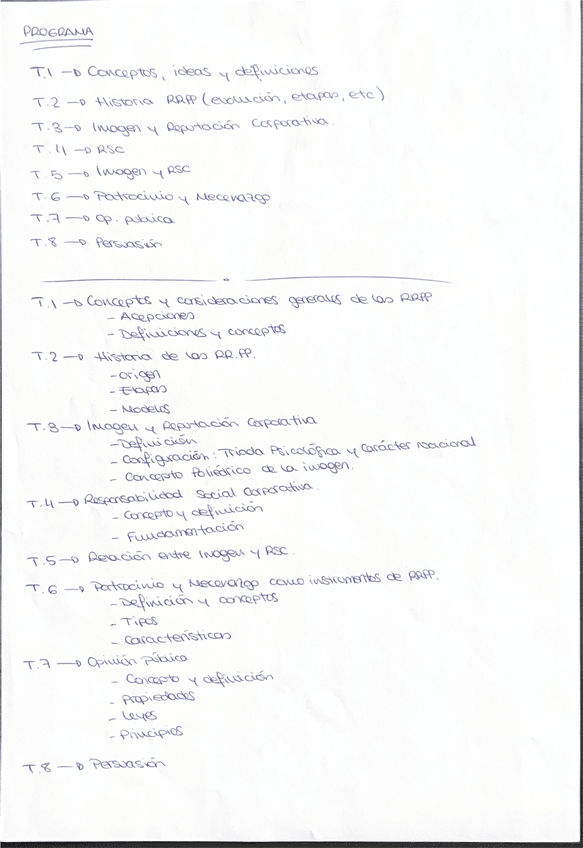 PROGRAMA
T.1 → Conceptos, ideas y definiciones
T.2 → Historia RRPP (evolución, etapas, etc)
T.3 → Imagen y Reputación Corporativa.
T.4 → RSC
T.5 → Imagen y RSC
T.6 → Patrocinio y Mecenazgo
T.7 → Op. pública
T.8 → Persuasión
T.1 → Conceptos y consideraciones generales de las RRPP
- Acepciones
- Definiciones y conceptos
T.2 → Historia de las RR.PP.
- origen
- Etapas
- Modelos
T.3 → Imagen y Reputación Corporativa
- Definición
- Configuración: Triada Psicológica y carácter
- Concepto Poliédrico de la imagen.
T.4 → Responsabilidad Social Corporativa.
- Concepto y definición
- Fundamentación
T.5 → Relación entre Imagen y RSC.
T.6 → Patrocinio y Mecenazgo como instrumentos de RRPP.
- Definición y conceptos
- Tipos
- Características
T.7 → Opinión pública
- Concepto y definición
- Propiedades
- Leyes
- Principios
T.8 → Persuasión